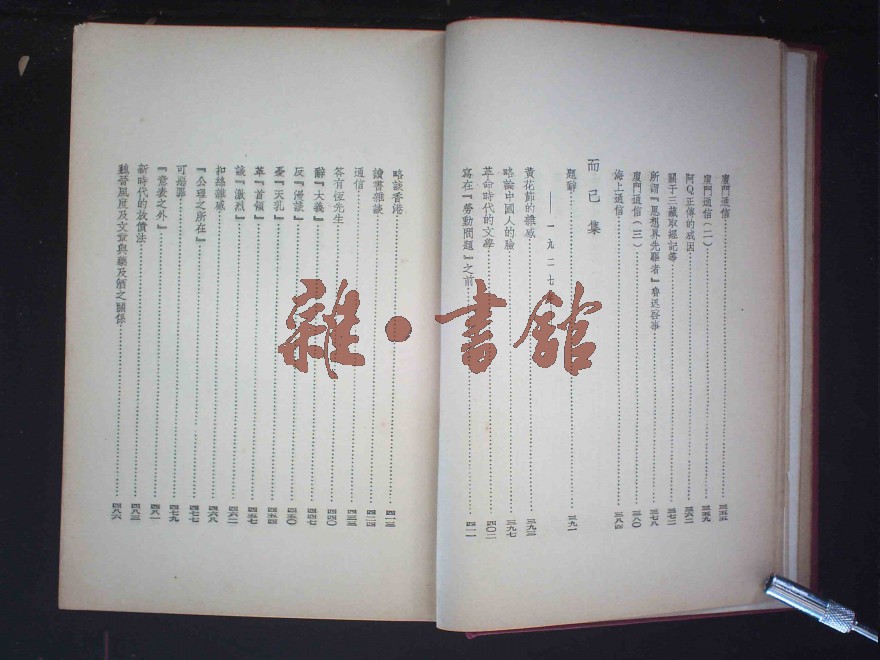 廈門通信 三五五
廈門通信(二) 三五九
阿Q正傳的成因 三六二
關于三藏取經記等 三七二
所謂『思想界先驅者』魯迅啓事 三七八
廈門通信(三) 三八〇
海上通信 三八四
而已集
題辭 三九一
——一九二七
黃花節的雜感 三九三
略論中國人的臉 三九七
革命時代的文學 四〇二
寫在『勞動問題』之前 四一一
略談香港 四一三
讀書雜談 四二四
通信 四三三
答有恆先生 四四〇
辭『大義』 四四七
反『漫談』 四五〇
憂『天乳』 四五四
革『首領』 四五七
談『激烈』 四六二
扣絲雜感 四六八
『公理之所在』 四七七
可惡罪 四七九
『意表之外』 四八一
新時代的放債法 四八三
魏晉風度及文章與藥及酒之關係 四八六
雜·書館